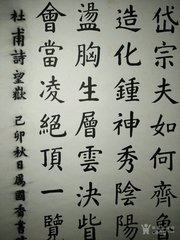 岱宗夫如何齊
造化鍾神秀陰陽
盪胸生層雲決眥
會當凌絕頂一覽
杜甫詩望嶽 己卯秋日属國香書